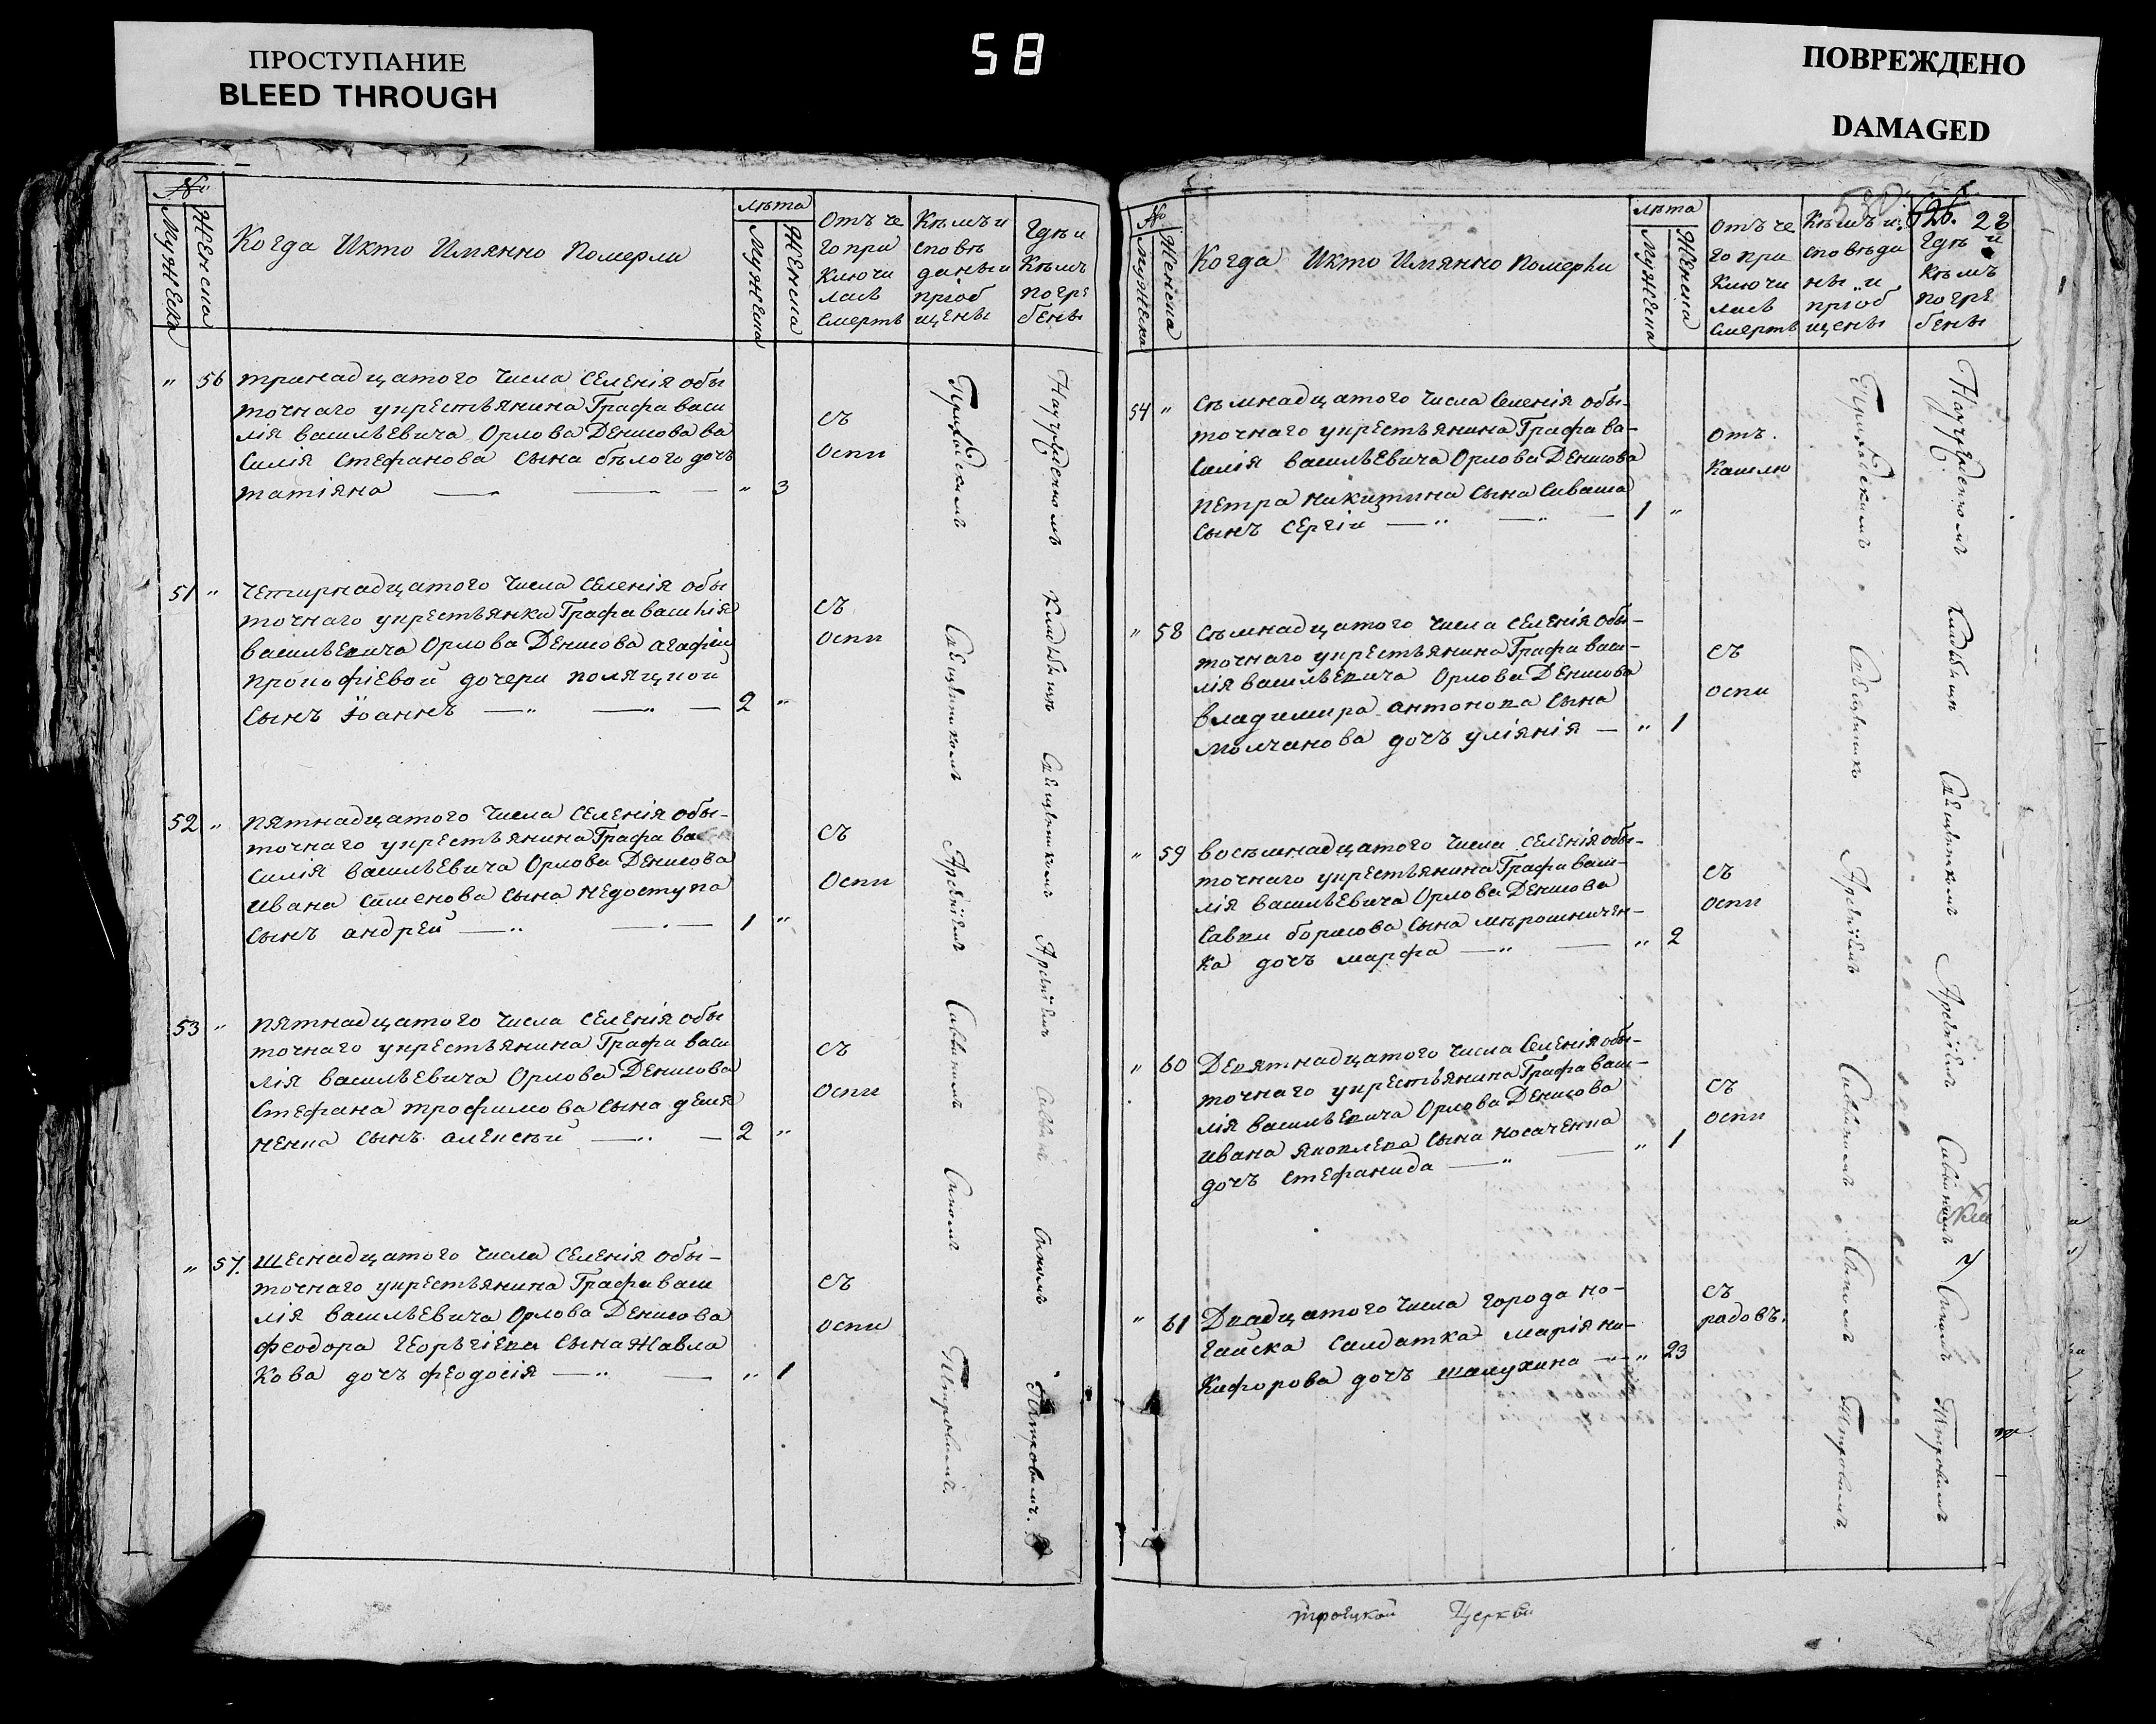 ПРОСТУПАНИЕ
BLEED THROUGH
58
ПОВРЕЖДЕНО
DAMAGED
№
Мужеска
Женска
Когда Икто Имянно Померли
лѣта
Мужеска
Женска
Отъ че
го при
ключи
лась
Смерть
Кѣмъ и
сповѣ
даны и
пріоб
щены
Гдѣ и
Кѣмъ
погре
бены
" 56 тринадцатого Числа Селенія обы
точнаго укрестьянина Графа васи
лія васильевича Орлова Денисова ва
силія Стефанова сына бѣлого дочъ
татіяна " 3
съ
Оспи
51 " четирнадцатого Числа Селенія обы
точнаго укрестьянки Графа василія
васильевича Орлова Денисова агафіи
прокофіевой дочери
сынъ Іоаннъ 2 "
съ
Оспи
52 " пятнадцатого Числа Селенія обы-
точнаго укрестьянина Графа ва
силія васильевича Орлова Денисова
ивана Сименова сына недоступа
сынъ андрей 1 "
съ
Оспи
53 " пятнадцатого Числа Селенія обы
точнаго укрестьянина Графа васи
лія васильевича Орлова Денисова
Стефана трофимова сына демя
ненка сынъ алексѣй 2 "
съ
Оспи
" 57. шеснадцатого Числа Селенія обы-
точнаго укрестьянина Графа васи
лія васильевича Орлова Денисова
феодора Георьгіева сына Жавла
Кова дочъ феодосія " 1
съ
оспи
Приходскимъ Священникомъ Арсеніемъ Саввинымъ Сыномъ Петровымъ.
Кладбищѣ Священникомъ Арсеніемъ Сыномъ Петровымъ.
626. 22
№
Мужеска
Женска
Когда Икто Имянно Померли
лѣта
Мужеска
Женска
Отъ че
го при
ключи
лась
Смерть
Кѣмъ и
сповѣда
ны и
пріоб
щены
Гдѣ и
Кѣмъ
погре
бены
54 " сѣмнадцатого Числа Селенія обы-
точнаго укрестьянина Графа ва-
силія васильевича Орлова Денисова
петра никитина сына Сиваша
сынъ Сергій 1 "
отъ.
Кашлю
" 58 сѣмнадцатого числа Селенія обы-
точнаго укрестьянина Графа васи-
лія васильевича Орлова Денисова
владимира антонова сына
молчанова дочъ уліянія " 1
съ
оспи
" 59 восѣмнадцатого Числа Селенія обы-
точнаго укрестьянина Графа васи-
лія васильевича Орлова Денисова
Савки борисова сына мѣрошничен-
ка дочъ марфа " 2
съ
оспи
" 60 Девятнадцатого числа Селенія обы-
точнаго укрестьянина Графа васи-
лія васильевича Орлова Денисова
ивана яковлева сына носаченка
дочъ Стефанида " 1
съ
оспи
" 61 Двадцатого Числа города но-
гайска Салдатка марія ни-
кифорова дочъ шалухина " 23
съ
родовъ.
Приходскимъ Арсеніемъ Саввинымъ Сыномъ Петровымъ
Кладбищѣ Священникомъ Арсеніемъ Саввинымъ Сыномъ Петровымъ
троицкой Церкви